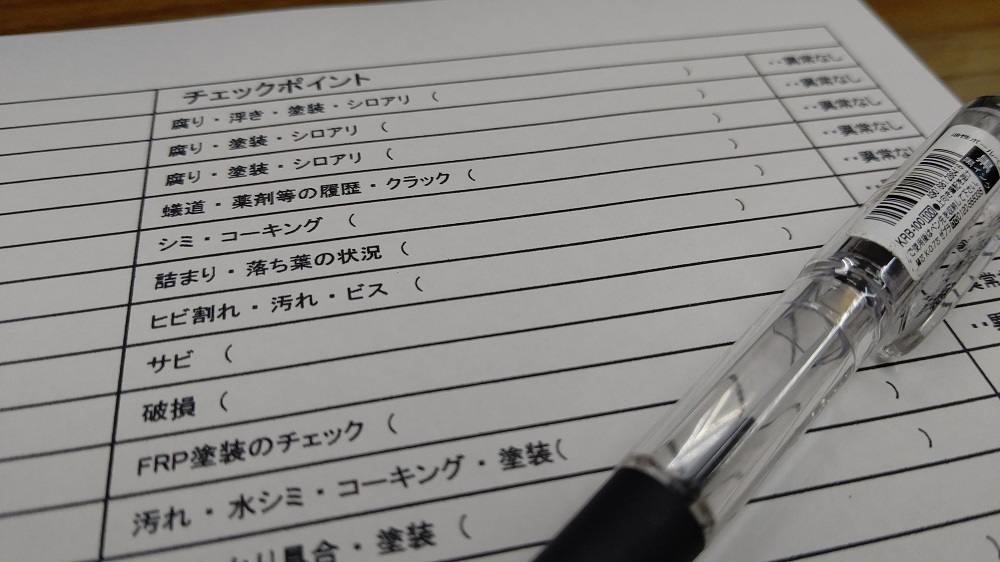 チェックポイント
腐り・浮き・塗装・シロアリ ( ) ・・異常なし
腐り・塗装・シロアリ ( ) ・・異常なし
腐り・塗装・シロアリ ( ) ・・異常なし
蟻道・薬剤等の履歴・クラック ( ) ・・異常なし
シミ・コーキング ( ) ・・異常な
詰まり・落ち葉の状況 ( ) ・・
ヒビ割れ・汚れ・ビス ( )
サビ (
破損 (
FRP塗装のチェック ( )
汚れ・水シミ・コーキング・塗装( )
具合・塗装 ( )
KRB-100